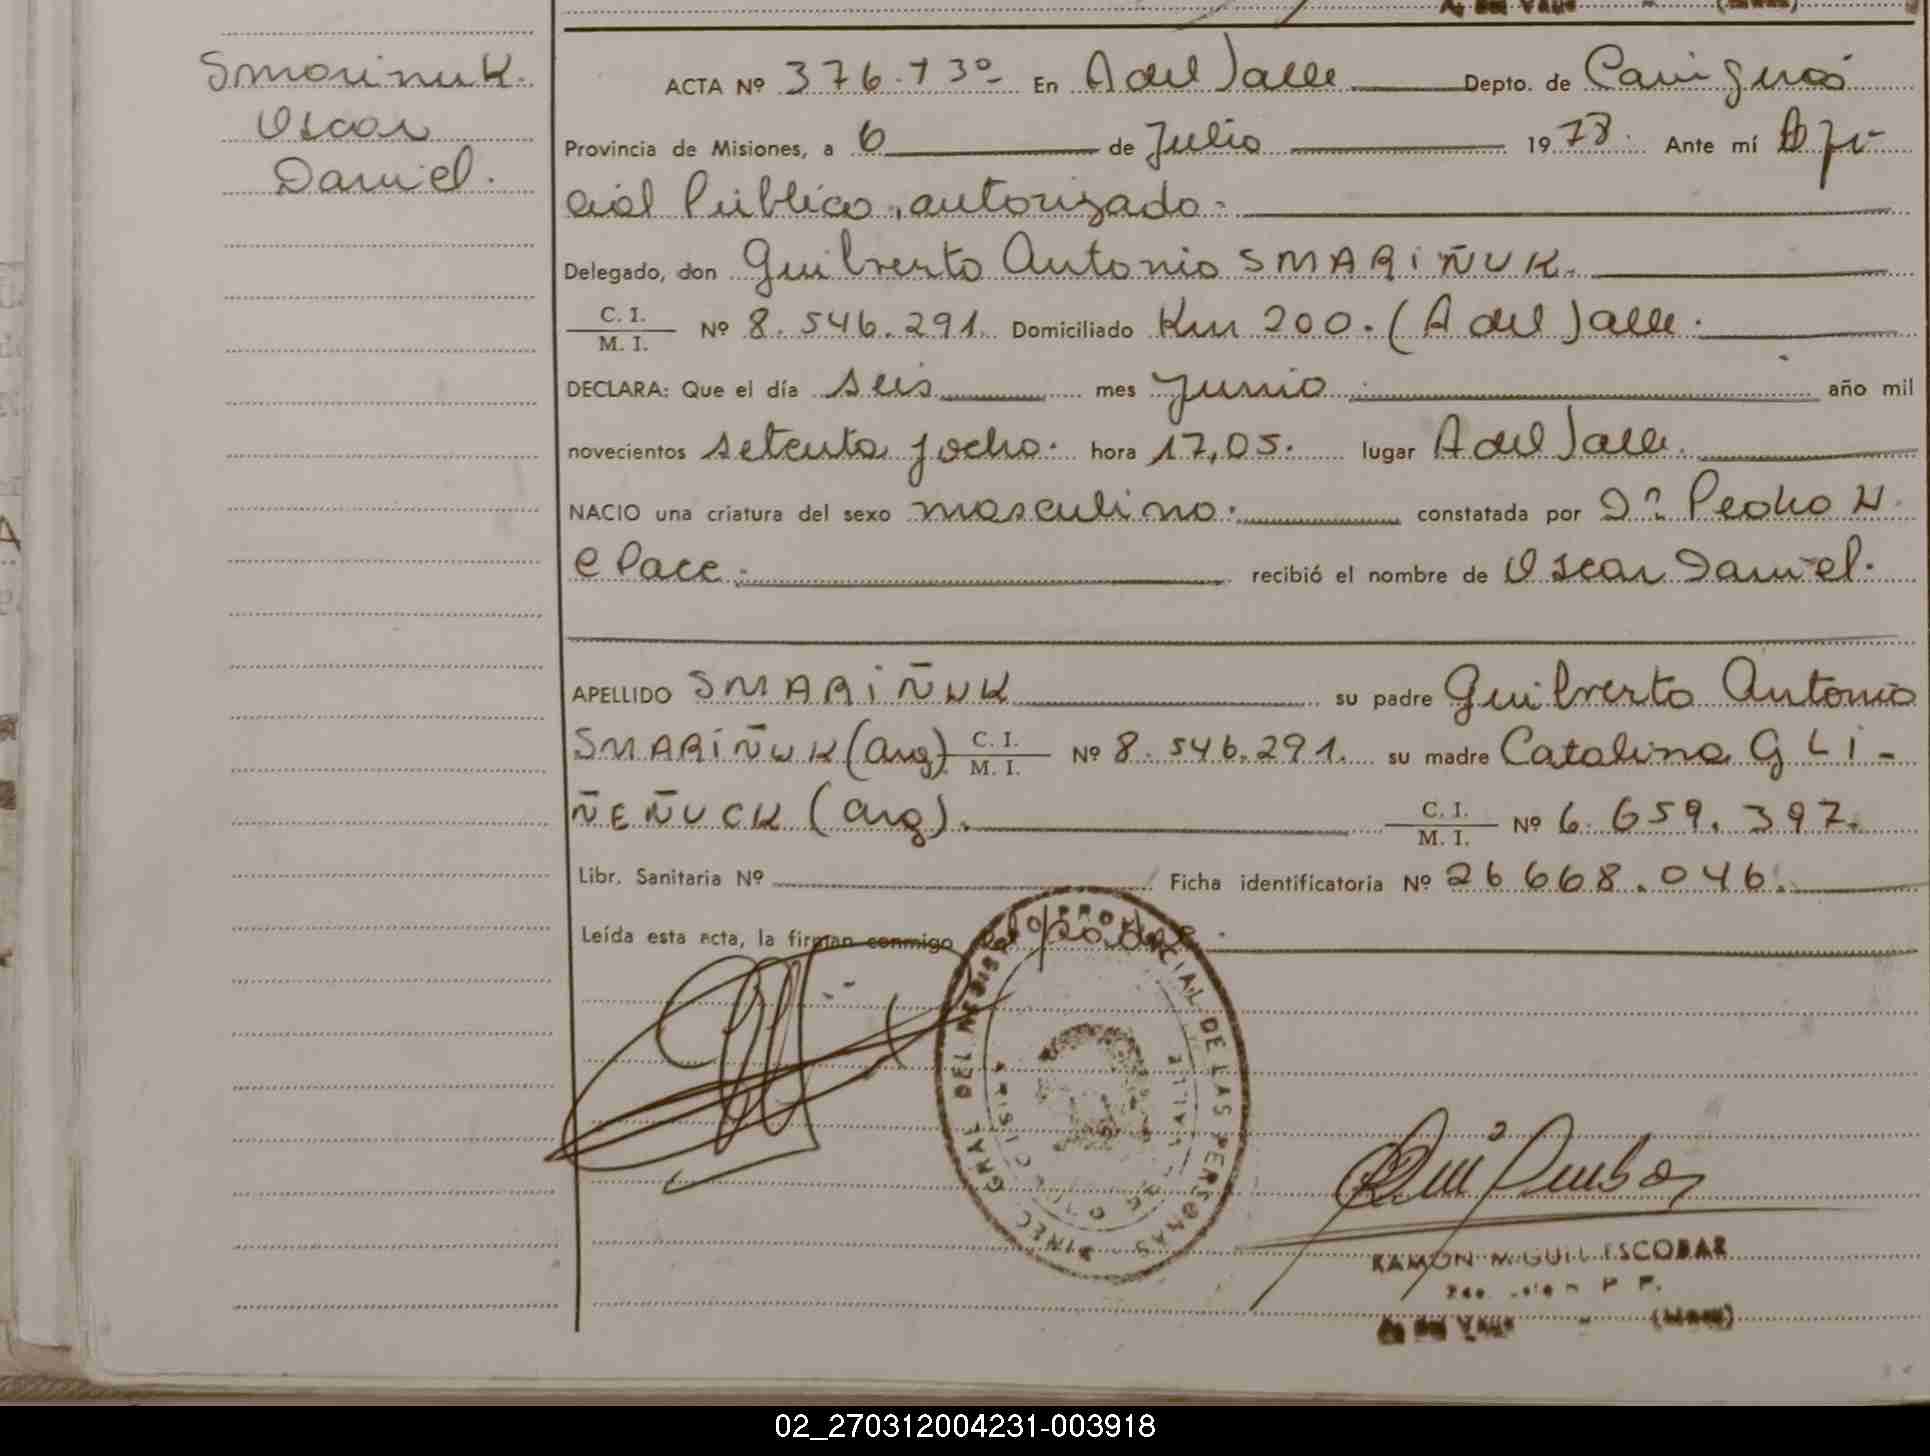 Smarinuk.
Oscar
Daniel.
ACTA Nº 376. Tº 3º En A del Valle Depto. de Cainguás
Provincia de Misiones, a 6 de Julio 1978. Ante mí Ofi-
cial Público, autorizado.
Delegado, don Guilberto Antonio SMARIÑUK.
C. I.
M. I. Nº 8.546.291. Domiciliado Km 200. (A del Valle.
DECLARA: Que el día seis mes Junio año mil
novecientos setenta y ocho. hora 17,05. lugar A del Valle.
NACIO una criatura del sexo masculino. constatada por Dº Pedro H
e Pace. recibió el nombre de Oscar Daniel.
APELLIDO SMARIÑUK su padre Guilberto Antonio
SMARIÑUK (Arg) C. I.
M. I. Nº 8.546.291. su madre Catalina GLI-
ÑEÑUCK (Arg). C. I.
M. I. Nº 6.659.397.
Libr. Sanitaria Nº Ficha identificatoria Nº 26668.046.
Leída esta acta, la firman conmigo el padre.
DIREC. GRAL. DEL REGISTRO PROVINCIAL DE LAS PERSONAS
RAMON MIGUEL ESCOBAR
02_270312004231-003918